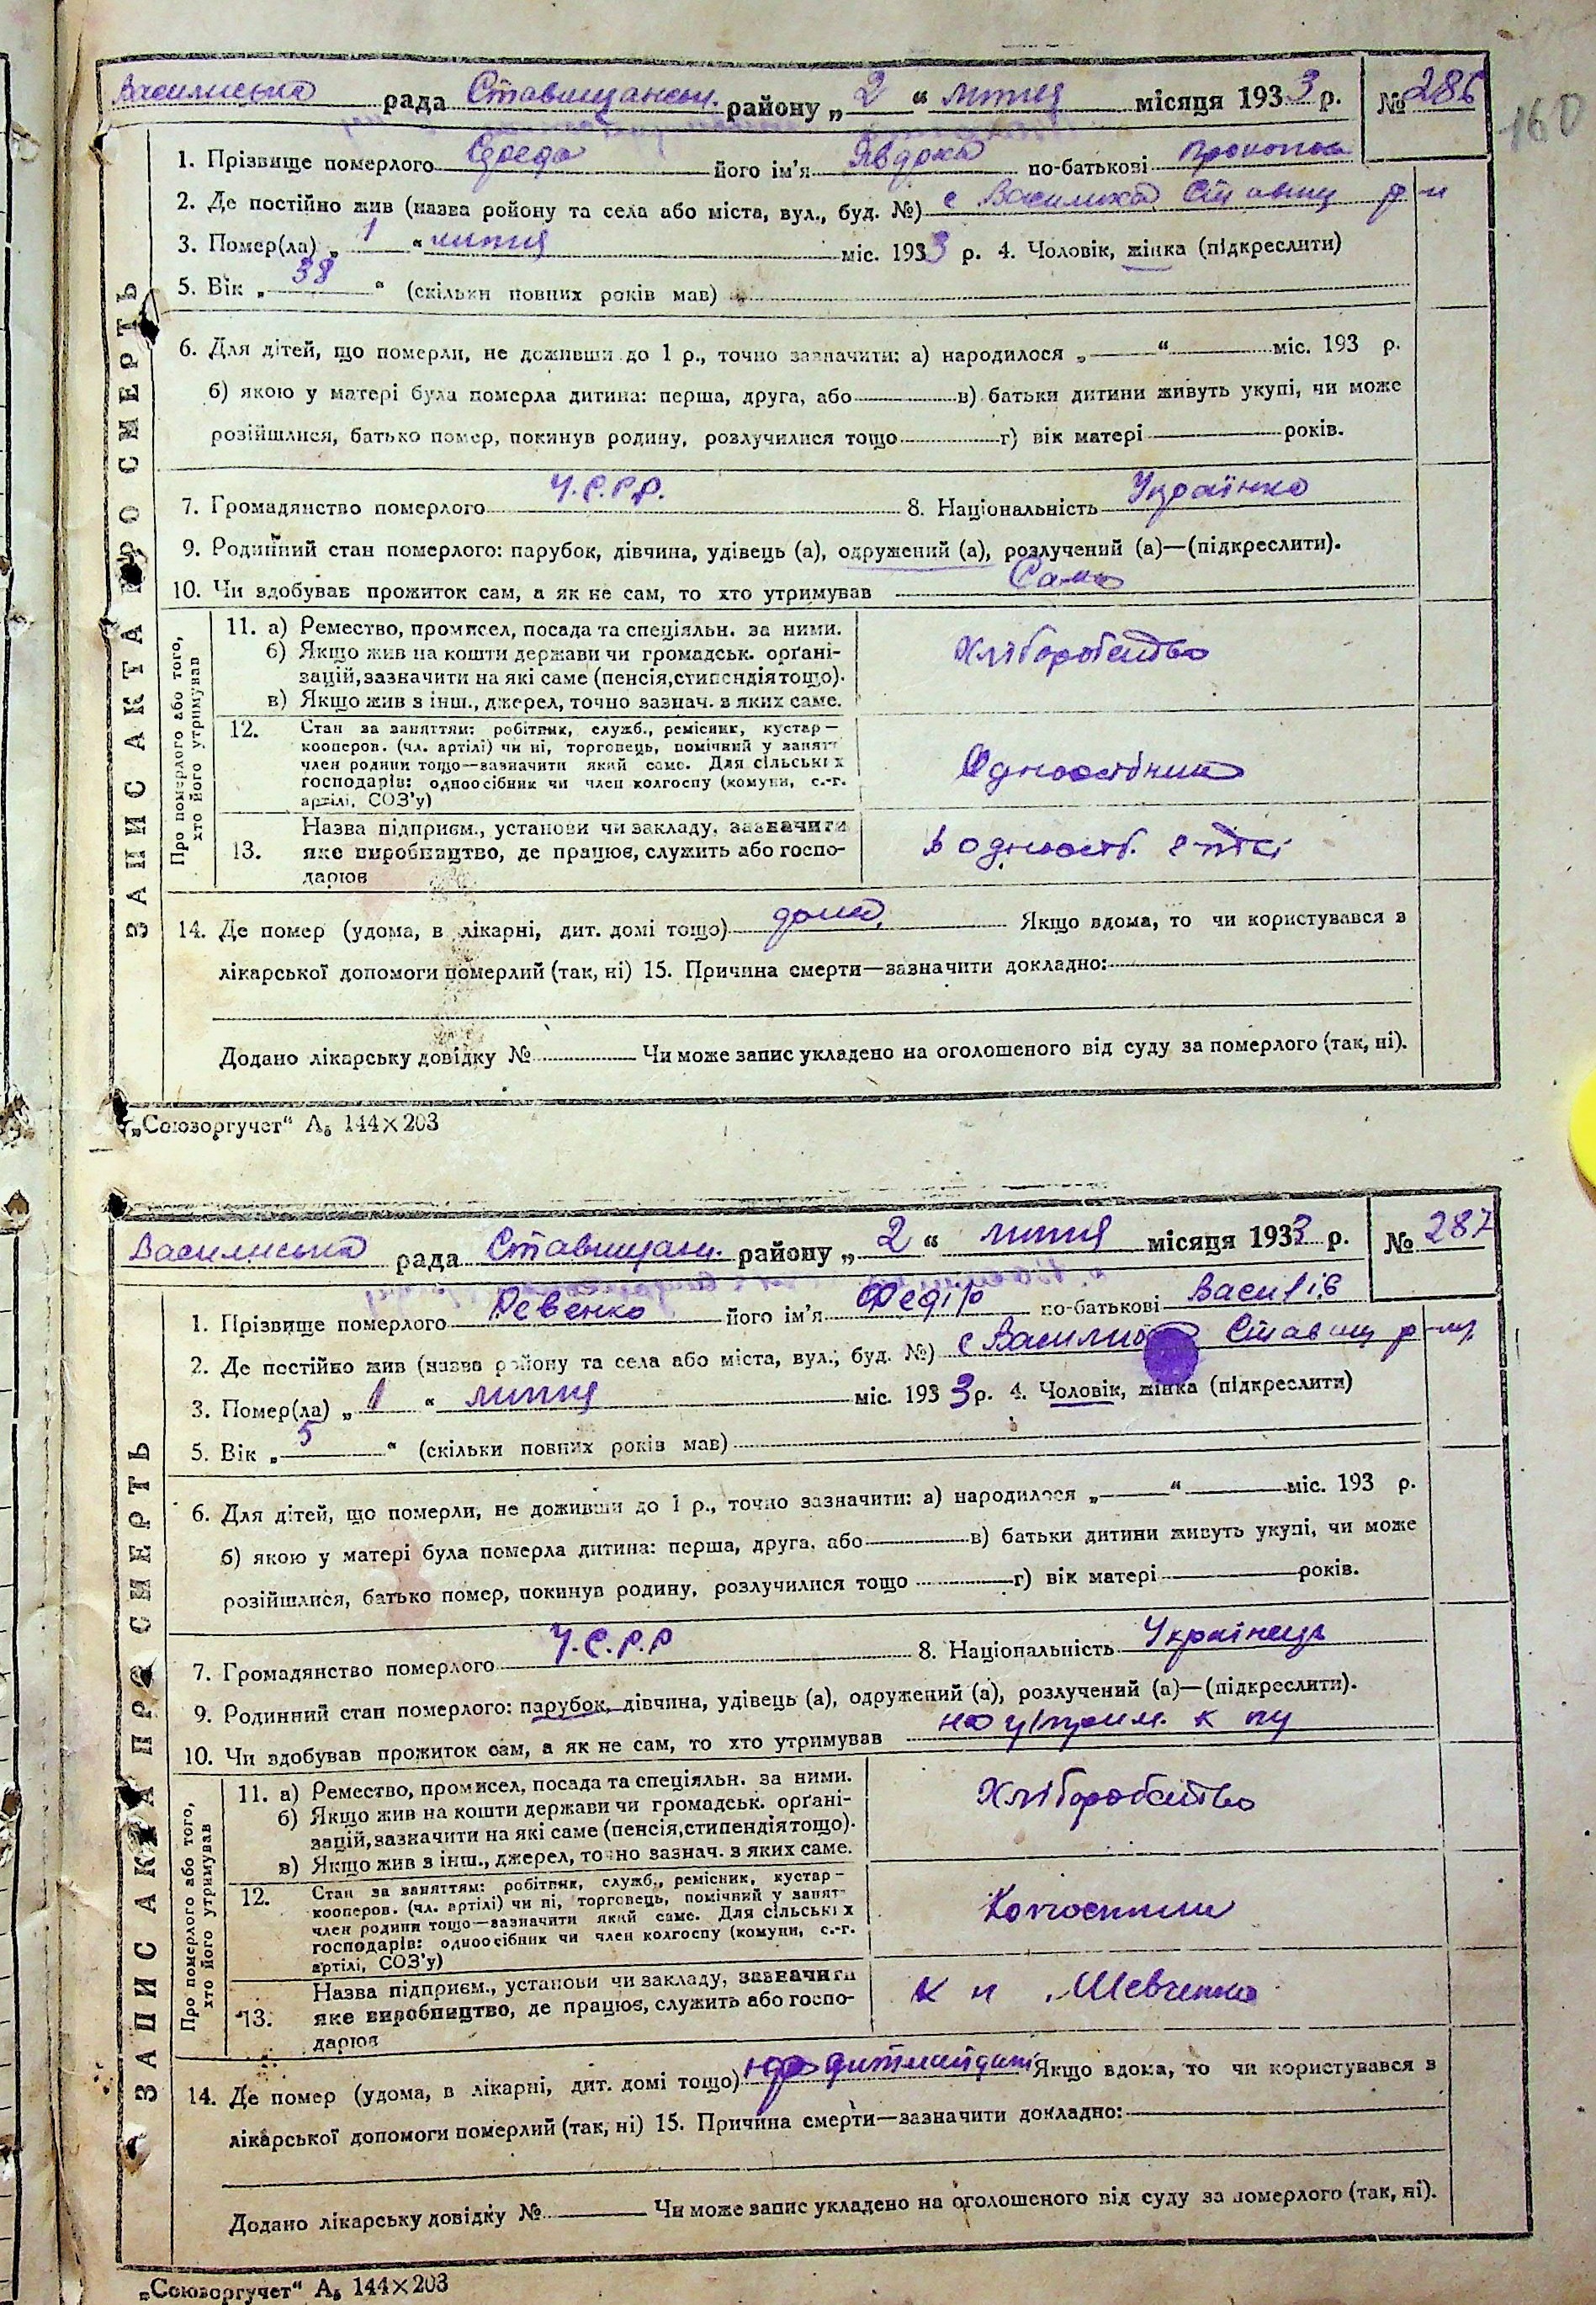 Василиська рада Ставищанськ. району „2“ липня місяця 1933 р. № 286
160
1. Прізвище померлого його ім'я Явдока по-батькові
2. Де постійно жив (назва ройону та села або міста, вул., буд. №) с Василиха Ставищ р-н
3. Помер(ла) „1“ липня міс. 1933 р. 4. Чоловік, жінка (підкреслити)
5. Вік „38“ (скільки повних років мав)
6. Для дітей, що померли, не доживши до 1 р., точно зазначити: а) народилося „ “ міс. 193 р.
б) якою у матері була померла дитина: перша, друга, або в) батьки дитини живуть укупі, чи може
розійшлися, батько помер, покинув родину, розлучилися тощо г) вік матері років.
7. Громадянство померлого У.С.Р.Р. 8. Національність Українка
9. Родинний стан померлого: парубок, дівчина, удівець (а), одружений (а), розлучений (а)—(підкреслити).
10. Чи здобував прожиток сам, а як не сам, то хто утримував Сама
ЗАПИС АКТА ПРО СМЕРТЬ
Про померлого або того, хто його утримував
11. а) Ремество, промисел, посада та спеціяльн. за ними.
б) Якщо жив на кошти держави чи громадськ. орґані-
зацій, зазначити на які саме (пенсія, стипендія тощо).
в) Якщо жив з інш., джерел, точно зазнач. з яких саме.
Хліборобство
12. Стан за заняттям: робітник, служб., ремісник, кустар—
кооперов. (чл. артілі) чи ні, торговець, помічний у занят-
член родини тощо—зазначити який саме. Для сільських
господарів: одноосібник чи член колгоспу (комуни, с.-г.
артілі, СОЗ'у)
Одноосібник
13. Назва підприєм., установи чи закладу, зазначити
яке виробництво, де працює, служить або госпо-
дарює
в одноосіб.
14. Де помер (удома, в лікарні, дит. домі тощо) дома. Якщо вдома, то чи користувався з
лікарської допомоги померлий (так, ні) 15. Причина смерти—зазначити докладно:
Додано лікарську довідку № Чи може запис укладено на оголошеного від суду за померлого (так, ні).
„Союзоргучет“ А₅ 144×203
Василиська рада Ставищан. району „2“ липня місяця 1933 р. № 287
1. Прізвище померлого Ревенко його ім'я Федір по-батькові Василів
2. Де постійно жив (назва району та села або міста, вул., буд. №) с Ставищ р-н
3. Помер(ла) „1“ липня міс. 1933 р. 4. Чоловік, жінка (підкреслити)
5. Вік „5“ (скільки повних років мав)
6. Для дітей, що померли, не доживши до 1 р., точно зазначити: а) народилося „ “ міс. 193 р.
б) якою у матері була померла дитина: перша, друга, або в) батьки дитини живуть укупі, чи може
розійшлися, батько помер, покинув родину, розлучилися тощо г) вік матері років.
7. Громадянство померлого У.С.Р.Р 8. Національність Українець
9. Родинний стан померлого: парубок, дівчина, удівець (а), одружений (а), розлучений (а)—(підкреслити).
10. Чи здобував прожиток сам, а як не сам, то хто утримував на утрим. к
ЗАПИС АКТА ПРО СМЕРТЬ
Про померлого або того, хто його утримував
11. а) Ремество, промисел, посада та спеціяльн. за ними.
б) Якщо жив на кошти держави чи громадськ. орґані-
зацій, зазначити на які саме (пенсія, стипендія тощо).
в) Якщо жив з інш., джерел, точно зазнач. з яких саме.
Хліборобство
12. Стан за заняттям: робітник, служб., ремісник, кустар—
кооперов. (чл. артілі) чи ні, торговець, помічний у занят-
член родини тощо—зазначити який саме. Для сільських
господарів: одноосібник чи член колгоспу (комуни, с.-г.
артілі, СОЗ'у)
Колгоспник
13. Назва підприєм., установи чи закладу, зазначити
яке виробництво, де працює, служить або госпо-
дарює
Шевченка
14. Де помер (удома, в лікарні, дит. домі тощо) дитмайдані Якщо вдома, то чи користувався з
лікарської допомоги померлий (так, ні) 15. Причина смерти—зазначити докладно:
Додано лікарську довідку № Чи може запис укладено на оголошеного від суду за померлого (так, ні).
„Союзоргучет“ А₅ 144×203